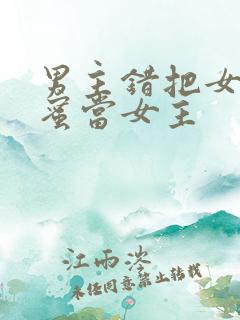 男主錯把女
蜜當女主
江雨淡
未经同意禁止转载